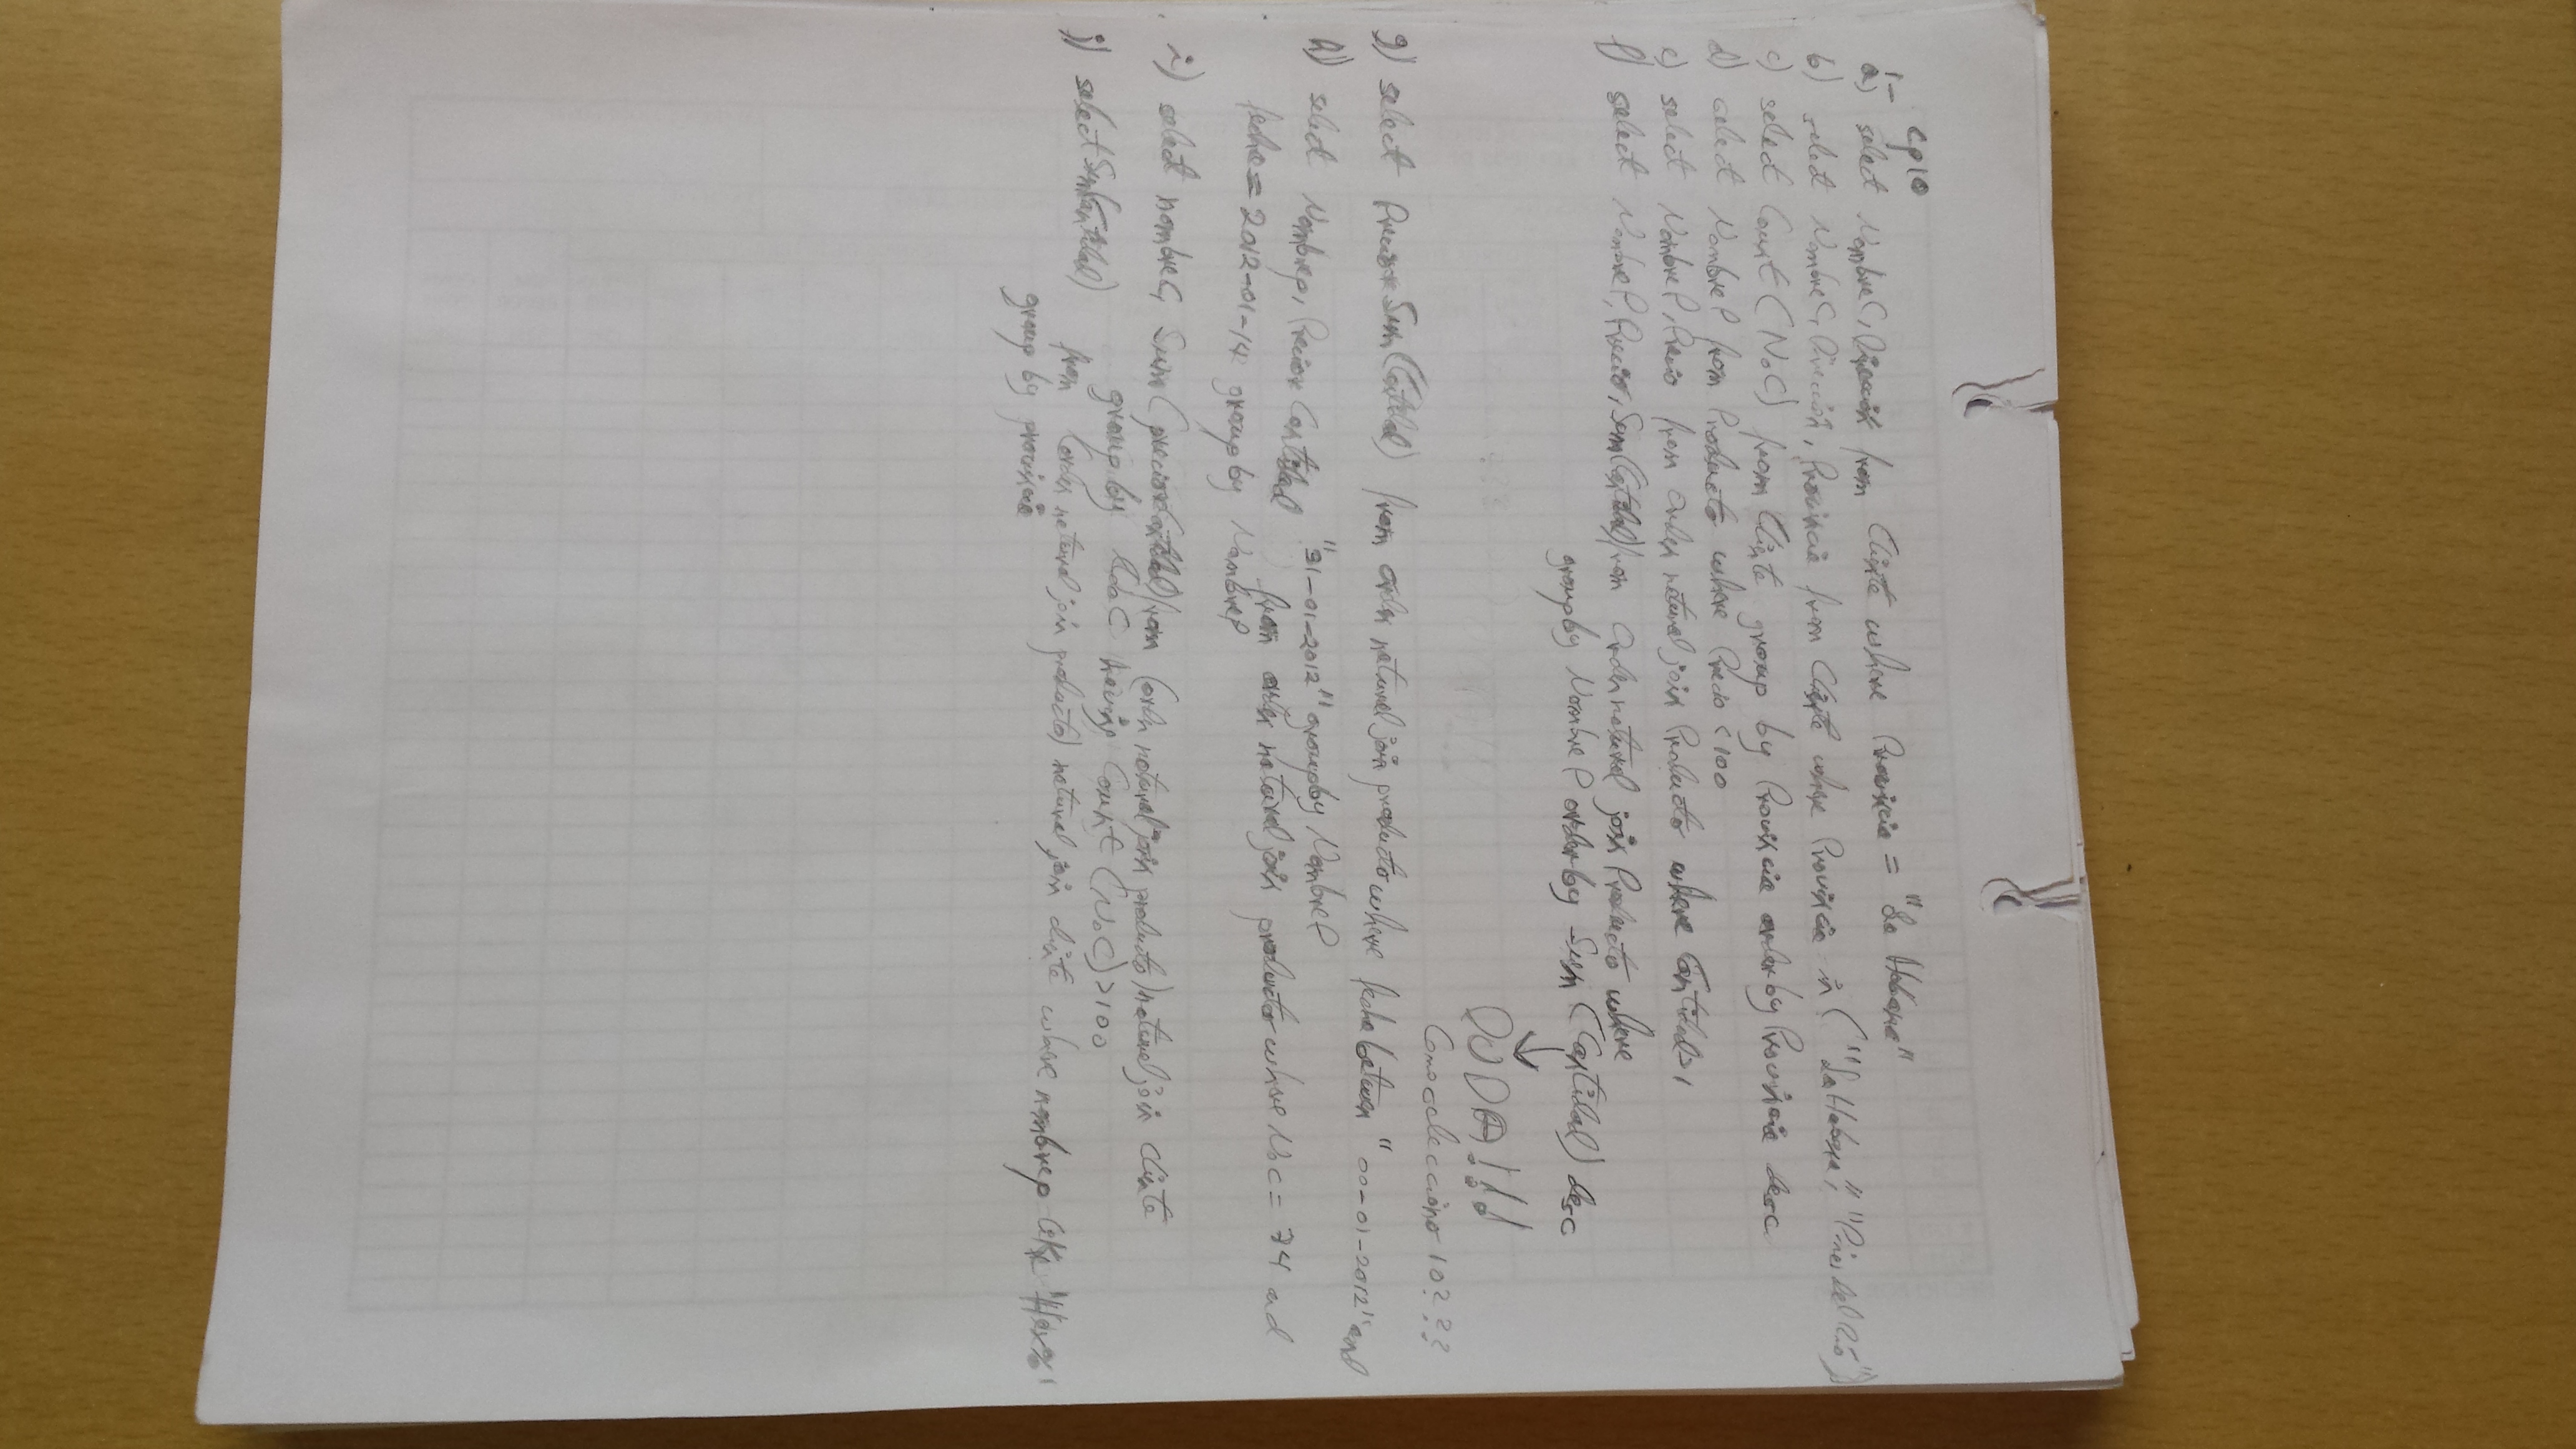 cp10
1-
a) select NombreC, Dirección from Cliente where Provincia = "La Habana"
b) select NombreC, Dirección, Provincia from Cliente where Provincia in ("La Habana", "Pinar del Rio")
c) select Count (NoC) from Cliente group by Provincia order by Provincia desc
d) select NombreP from Producto where Precio < 100
e) select NombreP, Precio from Orden natural join Producto where Cantidad>1
f) select NombreP, Precio, Sum(Cantidad) from Orden natural join Producto where
group by NombreP order by Sum (Cantidad) desc
DUDA!!!
Como selecciono 10???
g) select Precio* Sum (Cantidad) from orden natural join producto where fecha between "00-01-2012" and
"31-01-2012" group by NombreP
h) select NombreP, Precio* Cantidad from orden natural join producto where NoC = 74 and
fecha = 2012-01-14 group by NombreP
i) select nombreC, Sum (precio*Cantidad) from (orden natural join producto) natural join Cliente
group by NoC having Count (NoC) >100
j) select Sum(Cantidad) from (orden natural join producto) natural join cliente where nombrep like "Hax%"
group by provincia